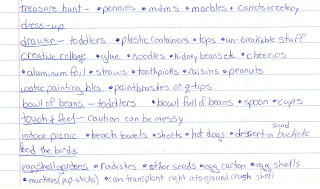 treasure hunt - • pennies • m&ms • marbles • carrots or celery
dress-up
drawer - toddlers • plastic containers • tops • un-breakable stuff
creative collage • glue • noodles • kidney beans etc • cheerios
• aluminum foil • straws • toothpicks • raisins • peanuts
water painting bks • paintbrushes or q-tips
bowl of beans - toddlers • bowl full of beans • spoon • cups
touch & feel - caution can be messy
sand
indoor picnic • beach towels • shorts • hot dogs • dessert in buckets
feed the birds
eggshell gardens • radishes • other seeds • egg carton • egg shells
• markers (pop-sticks) • can transplant right into ground, crush shell